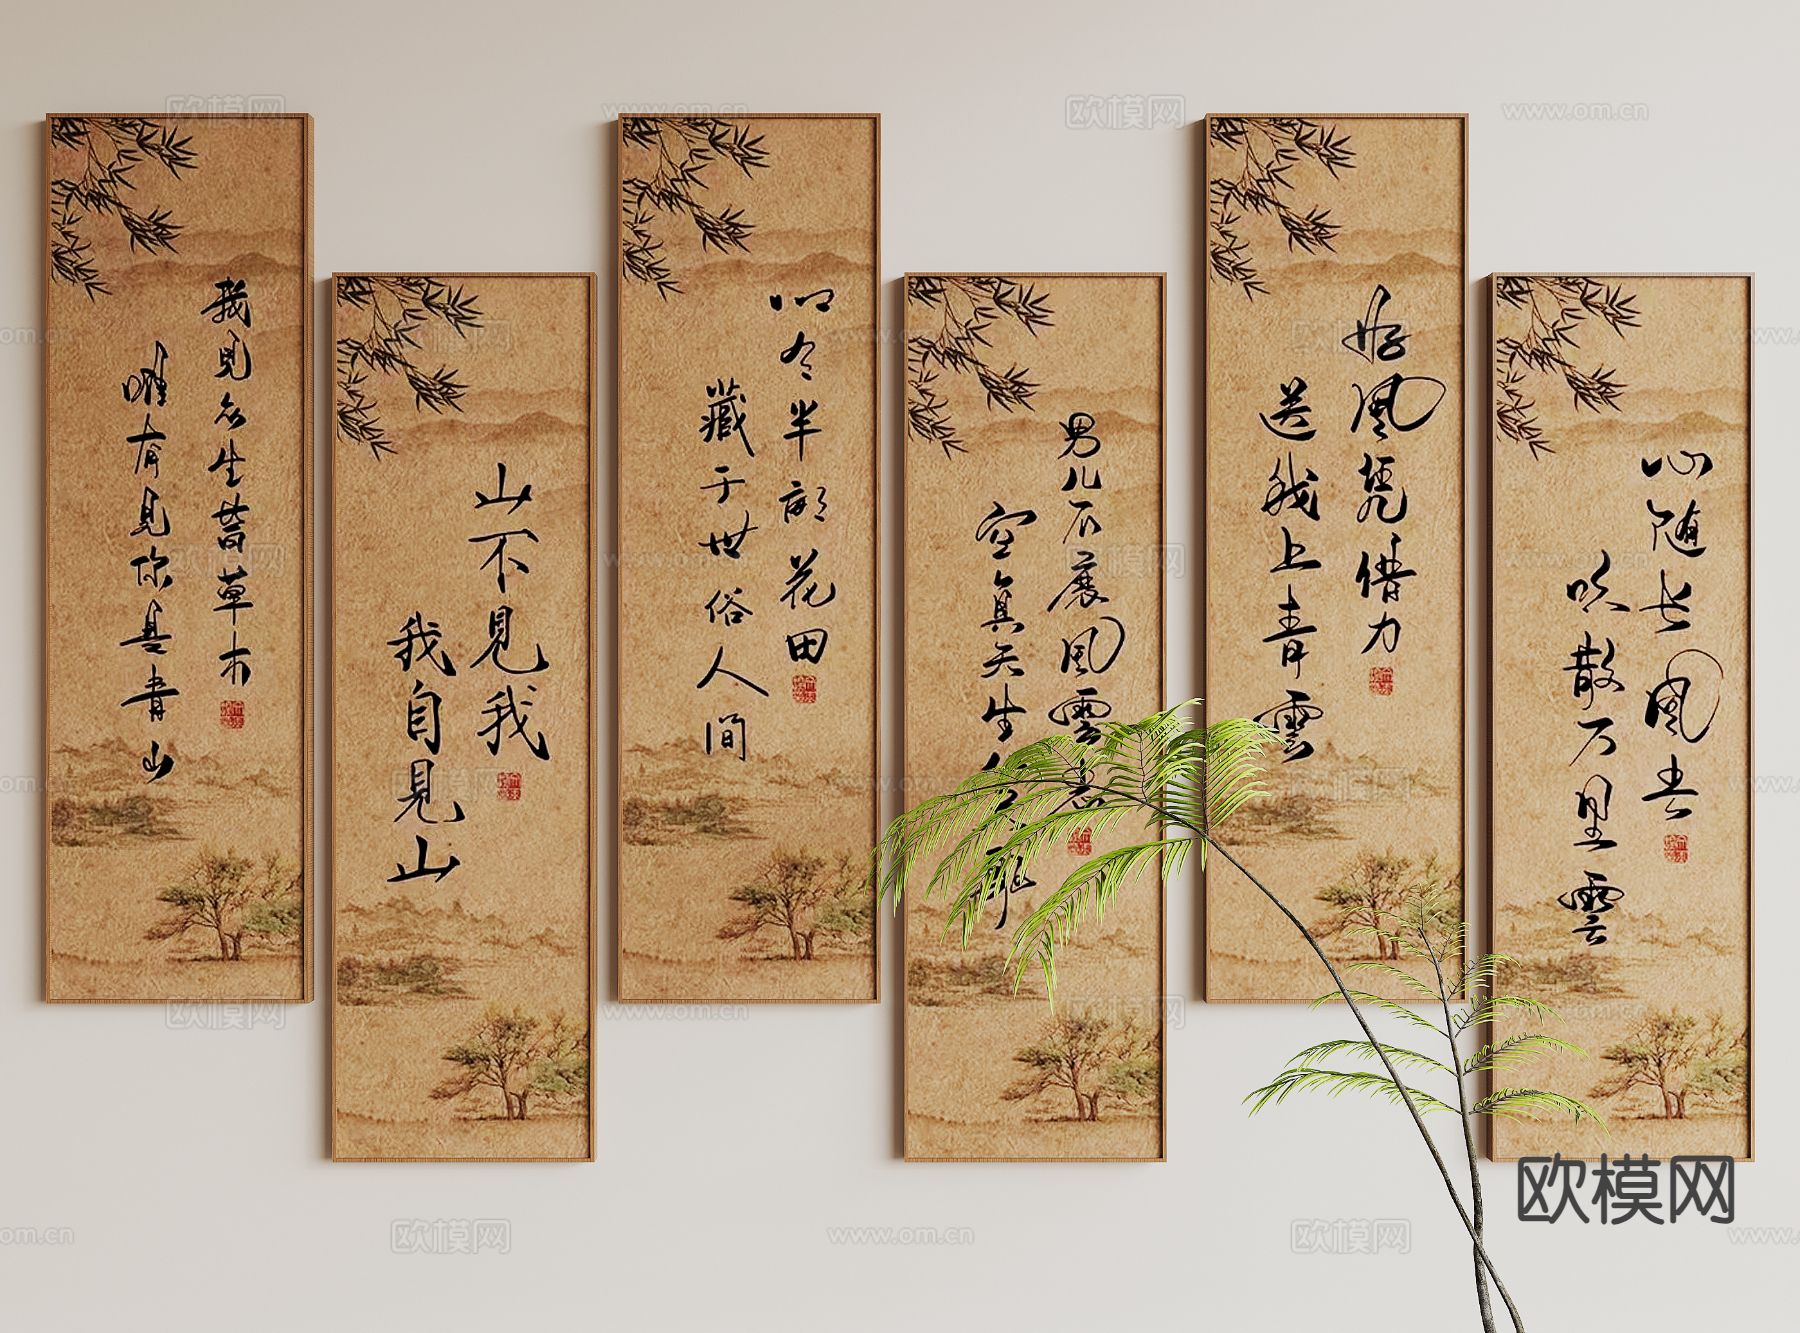 我見众生皆草木
唯有見你是青山
山不見我
我自見山
心有半亩花田
藏于世俗人间
男儿不展風雲志
空負天生
好風凭借力
送我上青雲
心随长風去
吹散万里雲
欧模网
www.om.cn